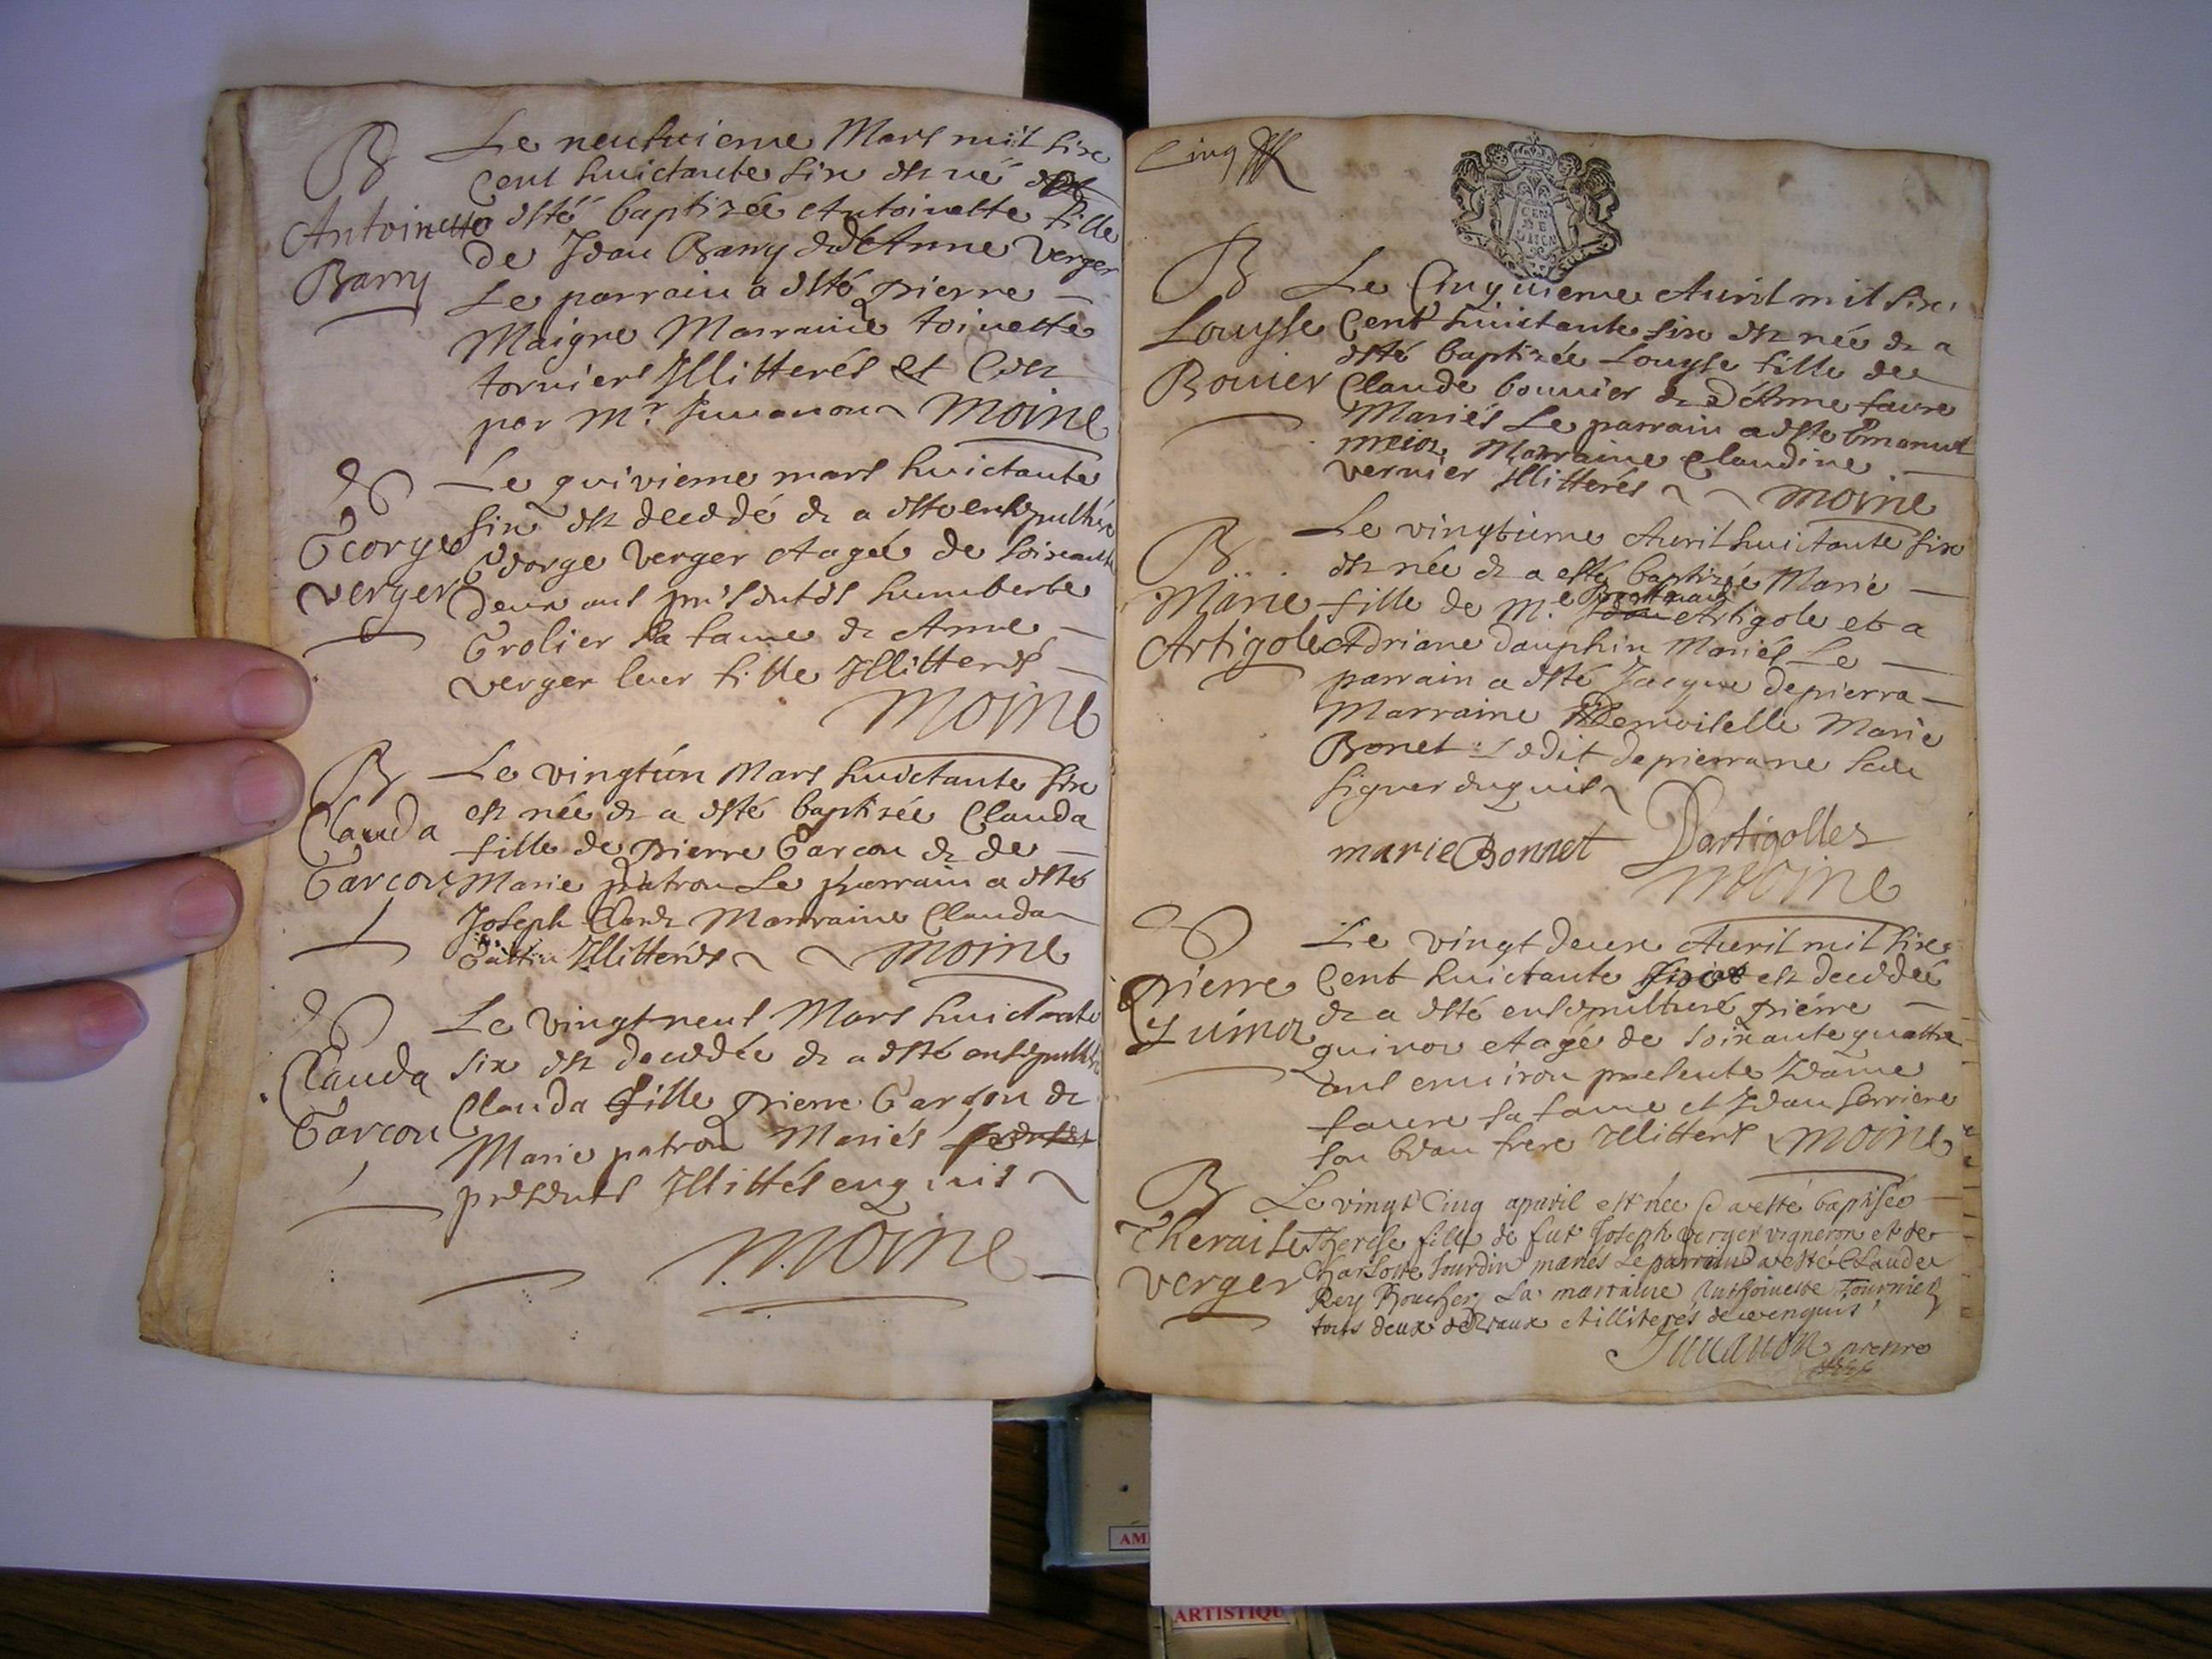 B
Antoinette
Barry
Le neufvieme Mars mil six
Cent huictante six est né
esté baptizée Antoinette fille
de Jean Barry et d'Anne Verger
Le parrain a esté pierre
Maigre Marraine toinette
torniers Illitterés et
par Mr. Juuanon Moine
George
verger
Le quivieme mars huictante
six est decedé et a esté ensepulturé
George Verger Aagé de soixante
deux ans presentes humberte
Grolier sa fame et Anne
verger leur fille Illitterés
Moine
B
Clauda
Garcon
Le vingtún Mars huictante six
est née et a esté baptizée Clauda
fille de pierre Garcon et de
Marie patron Le parrain a esté
Joseph Marraine Clauda
Illitterés Moine
Clauda
Garcon
Le vingt neuf Mars huictante
six est decedée et a esté ensepultu
Clauda fille pierre Garson et
Marie patron Mariés
presents Illittés enquis
Moine
Cinq
GEN
DE
B
Louyse
Bouier
Le Cinquieme Auril mil six
Cent huictante six est née et a
esté baptizée Louyse fille de
Claude bouuier et d'Anne faure
Mariés Le parrain a esté Emanuel
Marraine Claudine
vernier Illitterés Moine
B
Marie
Artigole
Le vingtieme Auril huictante six
est née et a esté baptizée Marie
fille de Me Artigole et a
Adriane Dauphin Mariés Le
parrain a esté Jacque depierra
Marraine Demoiselle Marie
Bonet Ledit depierra ne sceu
signer enquis
marie Bonnet Dartigolles
Moine
pierre
Quinon
Le vingt deux Auril mil six
Cent huictante est decedée
et a esté ensepulturé pierre
quinon Aagé de soixante quattre
ans enuiron presente
faure sa fame et Jean ferriere
son beau frere Illitterés Moine
B
Theraise
verger
Le vingt Cinq apvril est née et a esté baptisée
Therese fille de fut Joseph verger vigneron et de
Charlotte Jourdin mariés Le parrain a esté Claude
Rey Boucher La marraine Anthoinette Tournier
touts deux et illiterés de ce enquis
Juuanon prestre
AM
ARTISTIQU